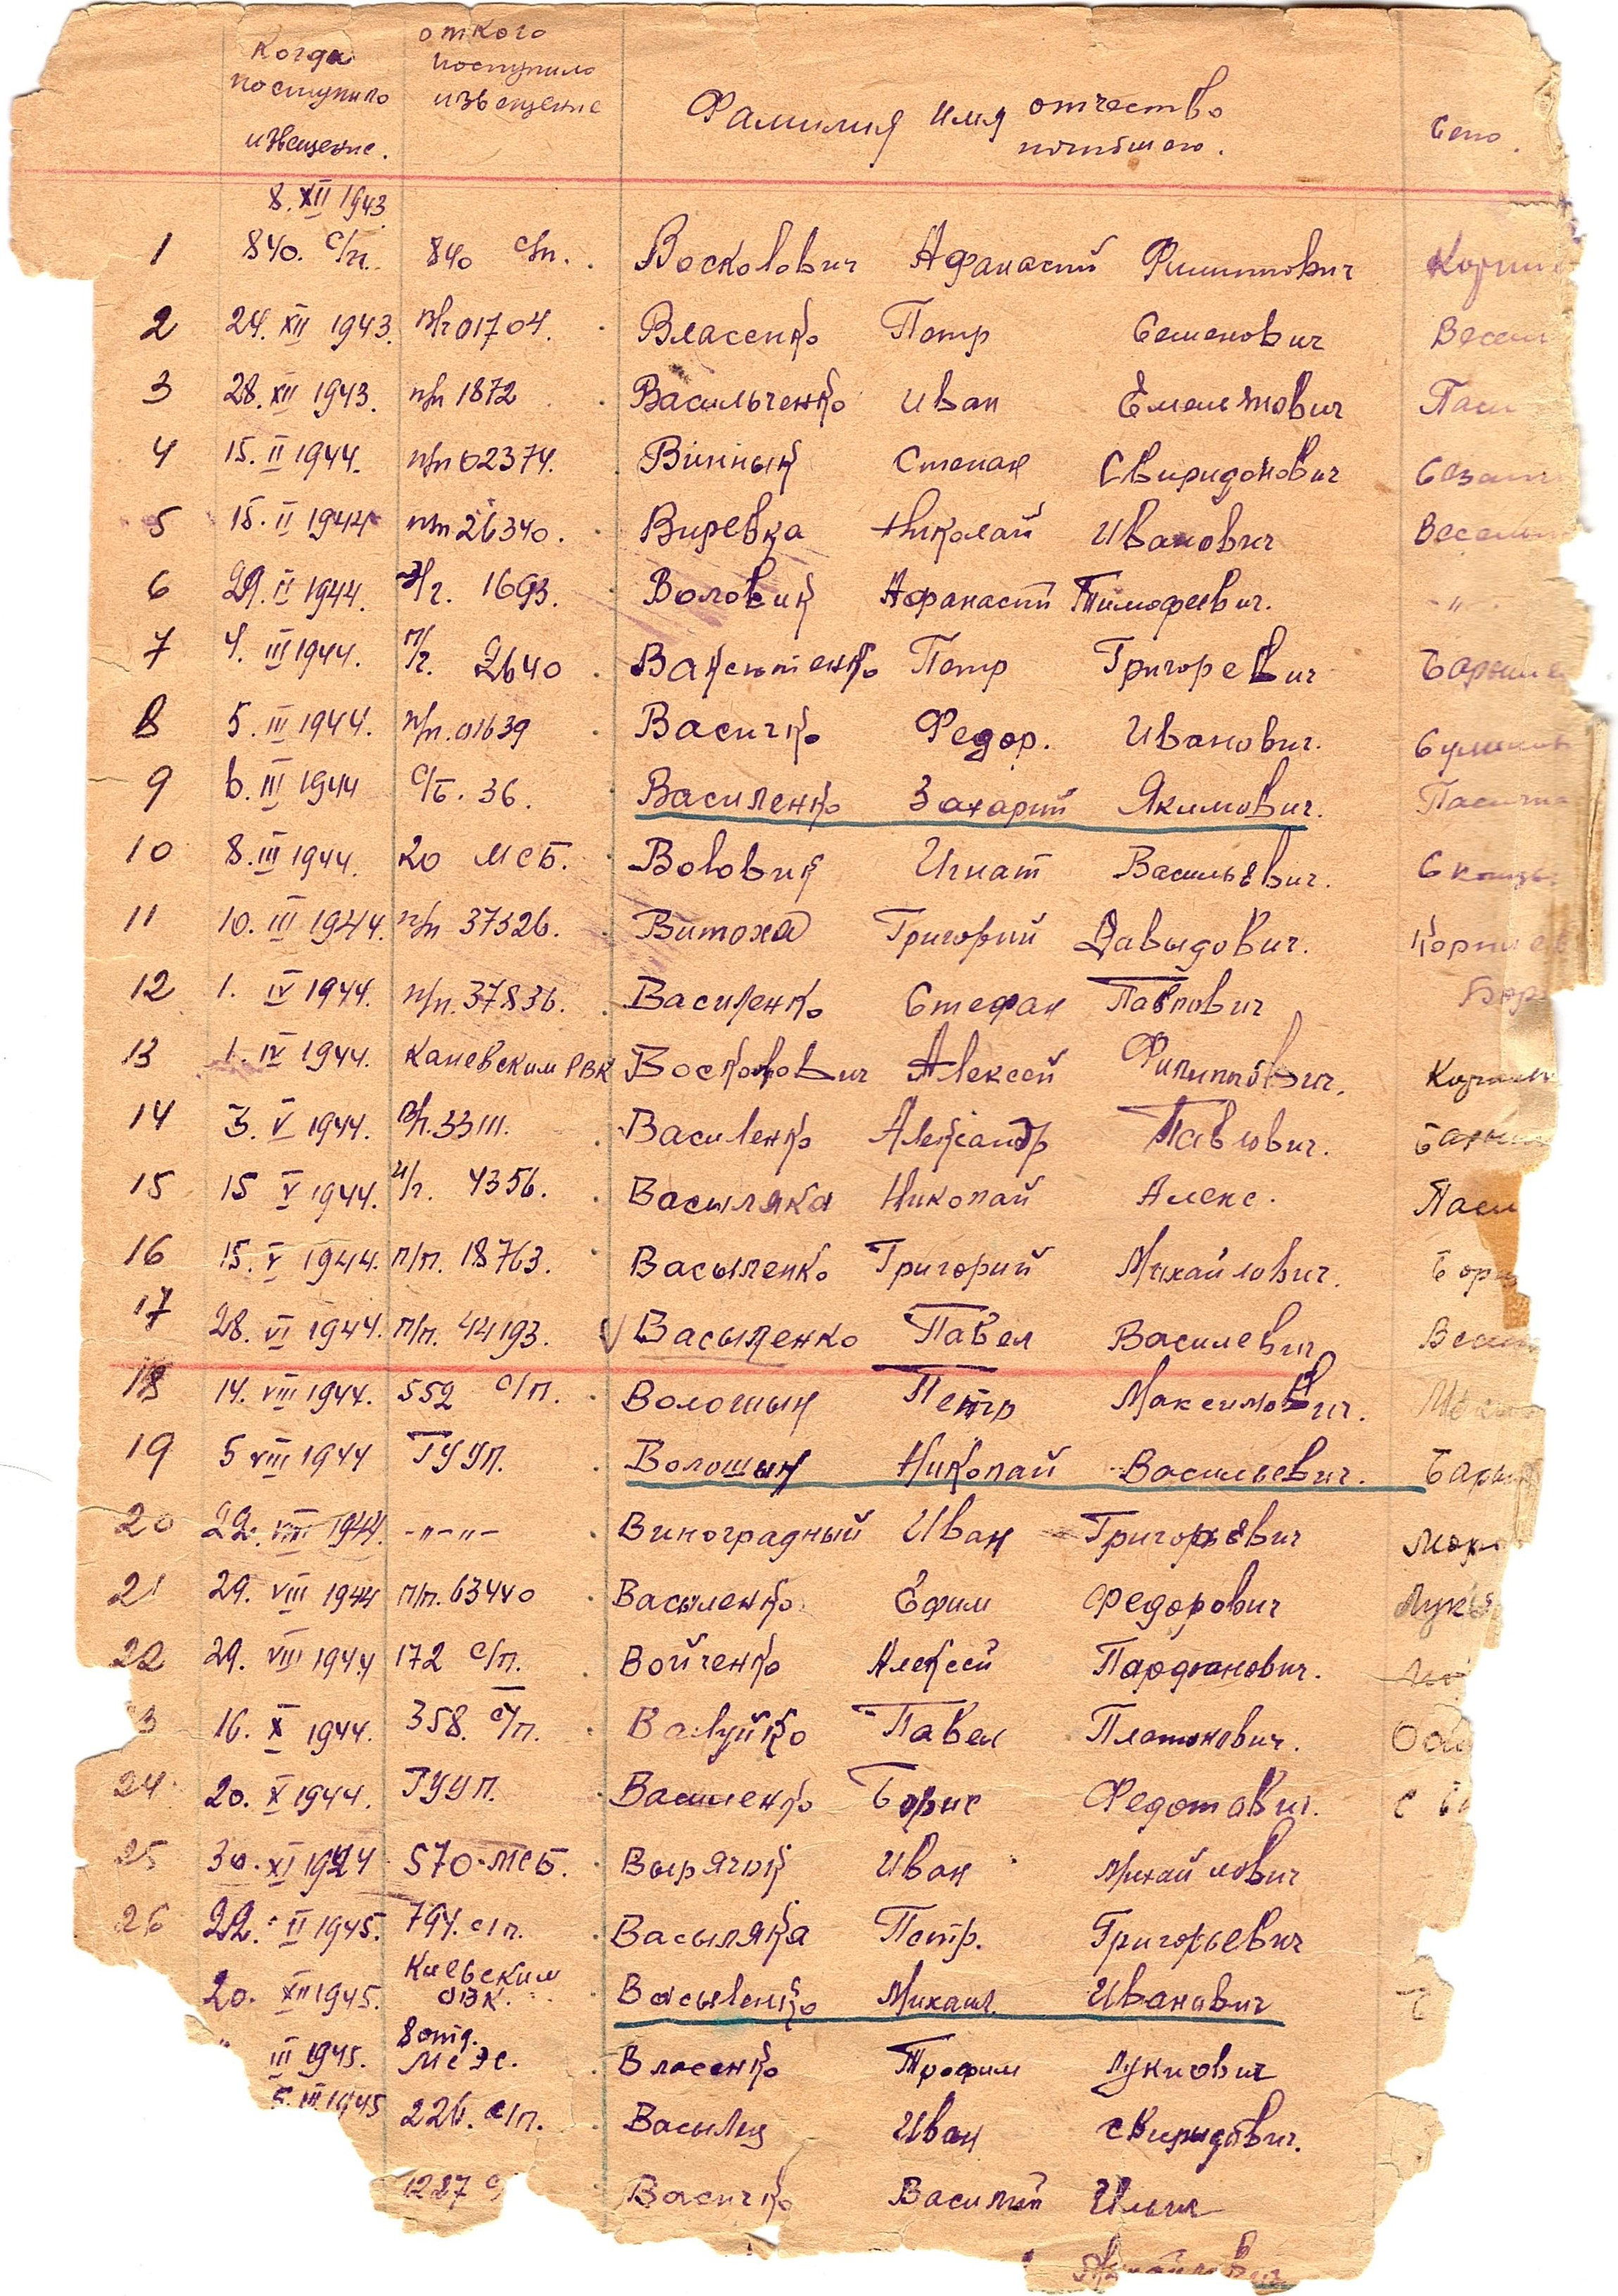 Когда поступило извещение.
от кого поступило извещение
Фамилия имя отчество погибшего.
Село.
8. XII 1943
1 840. с/п. 840 с/п. Восколович Афанасий Филиппович
2 24. XII 1943. п/ч 01704. Власенко Петр Семенович
3 28. XII 1943. п/п 1872 Васильченко Иван Емельянович
4 15. II 1944. п/п 02374. Вінник Степан Свиридонович
5 15. II 1944 п/п 26340. Виревка Николай Иванович
6 29. II 1944. 1693. Воловик Афанасий Тимофеевич. - " -
7 4. III 1944. п/ч. 2640 Ваксютенко Петр Григоревич
8 5. III 1944. п/п. 01639 Васичко Федор. Иванович.
9 6. III 1944 с/б. 36. Василенко Захарий Якимович.
10 8. III 1944. 20 МСБ. Воловик Игнат Васильевич.
11 10. III 1944. п/п 37326. Витоха Григорий Давыдович.
12 1. IV 1944. п/п. 37836. Василенко Стефан Павлович
13 1. IV 1944. Каневским РВК Восколович Алексей Филиппович.
14 3. V 1944. 33111. Василенко Александр Павлович.
15 15 V 1944. 4356. Васыляка Николай Алекс.
16 15. V 1944. п/п. 18763. Васыленко Григорий Михайлович.
17 28. VI 1944. п/п. 44193. V Васыленко Павел Василевич
18 14. VIII 1944. 552 с/п. Волошын Петр Максимович.
19 5 VIII 1944 ГУУП. Волошын Николай Васильевич.
20 22. VIII 1944. -"-"- Виноградный Иван Григорьевич
21 29. VIII 1944 п/п. 63440 Васыленко Ефим Федорович
22 29. VIII 1944 172 с/п. Войченко Алексей Парфанович.
3 16. X 1944. 358. с/п. Валуйко Павел Платонович.
24 20. X 1944. ГУУП. Василенко Борис Федотович.
25 30. XI 1944 570 МСБ. Вырячок Иван Михайлович
26 22. II 1945. 794. с/п. Васыляка Петр. Григорьевич
20. XII 1945. Киевским ОВК. Васыленко Михаил. Иванович
" III 1945. 8 отд. МСЭС. Власенко Трофим Лукичович
5. III 1945 226. с/п. Васылец Иван Свиридович.
1227 с/ Васичко Василий Ильич